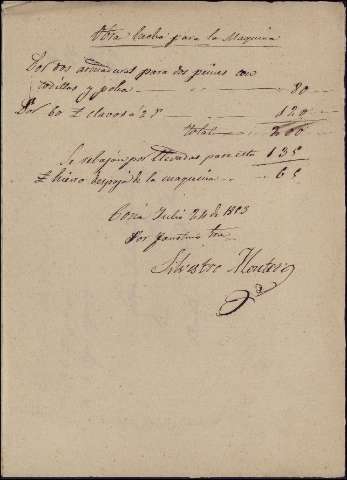 Obra hecha para la Maquina
Por dos armaduras para dos piezas con
rodillas y polea 80
Por 60 £ clavos á 2 r 120
total 200
Se rebajan por llevadas para esta 135
£ hierro despojo de la maquina 65
Coria Julio 24 de 1893
Por
Silvestre Montero